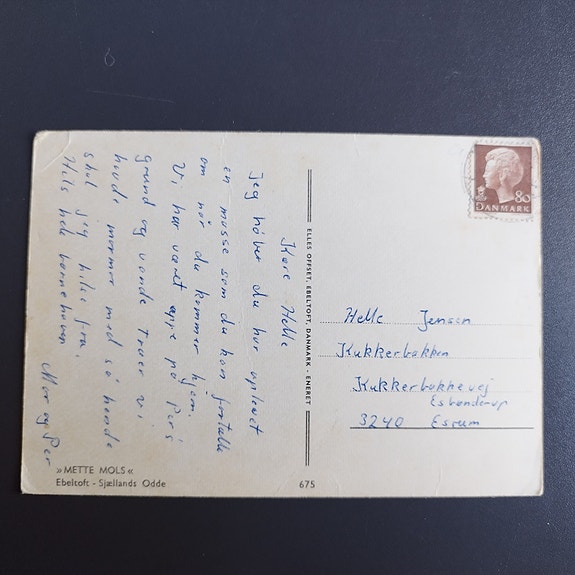 Kære Helle
Jeg håber du har oplevet
en masse som du kan fortælle
om når du kommer hjem.
Vi har været oppe på Per's
grund og vande træer vi
havde mormor med så hende
skal jeg hilse fra.
Hils hele børnehaven
Mor og Per
»METTE MOLS«
Ebeltoft - Sjællands Odde
675
ELLES OFFSET, EBELTOFT, DANMARK - ENERET
80
DANMARK
Helle Jensen
Kukkerbakken
Kukkerbakkevej
Esbønderup
3240 Esrum